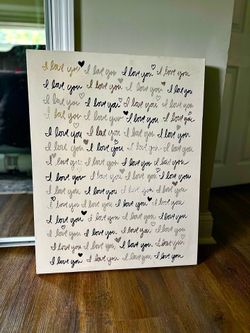 I love you I love you I love you I love you
I love you I love you I love you I love you
I love you I love you I love you I love you
I love you I love you I love you I love you
I love you I love you I love you I love you
I love you I love you I love you I love you
I love you I love you I love you I love you
I love you I love you I love you I love you
I love you I love you I love you I love you
I love you I love you I love you I love you
I love you I love you I love you I love you
I love you I love you I love you I love you
I love you I love you I love you I love you
I love you I love you I love you I love you